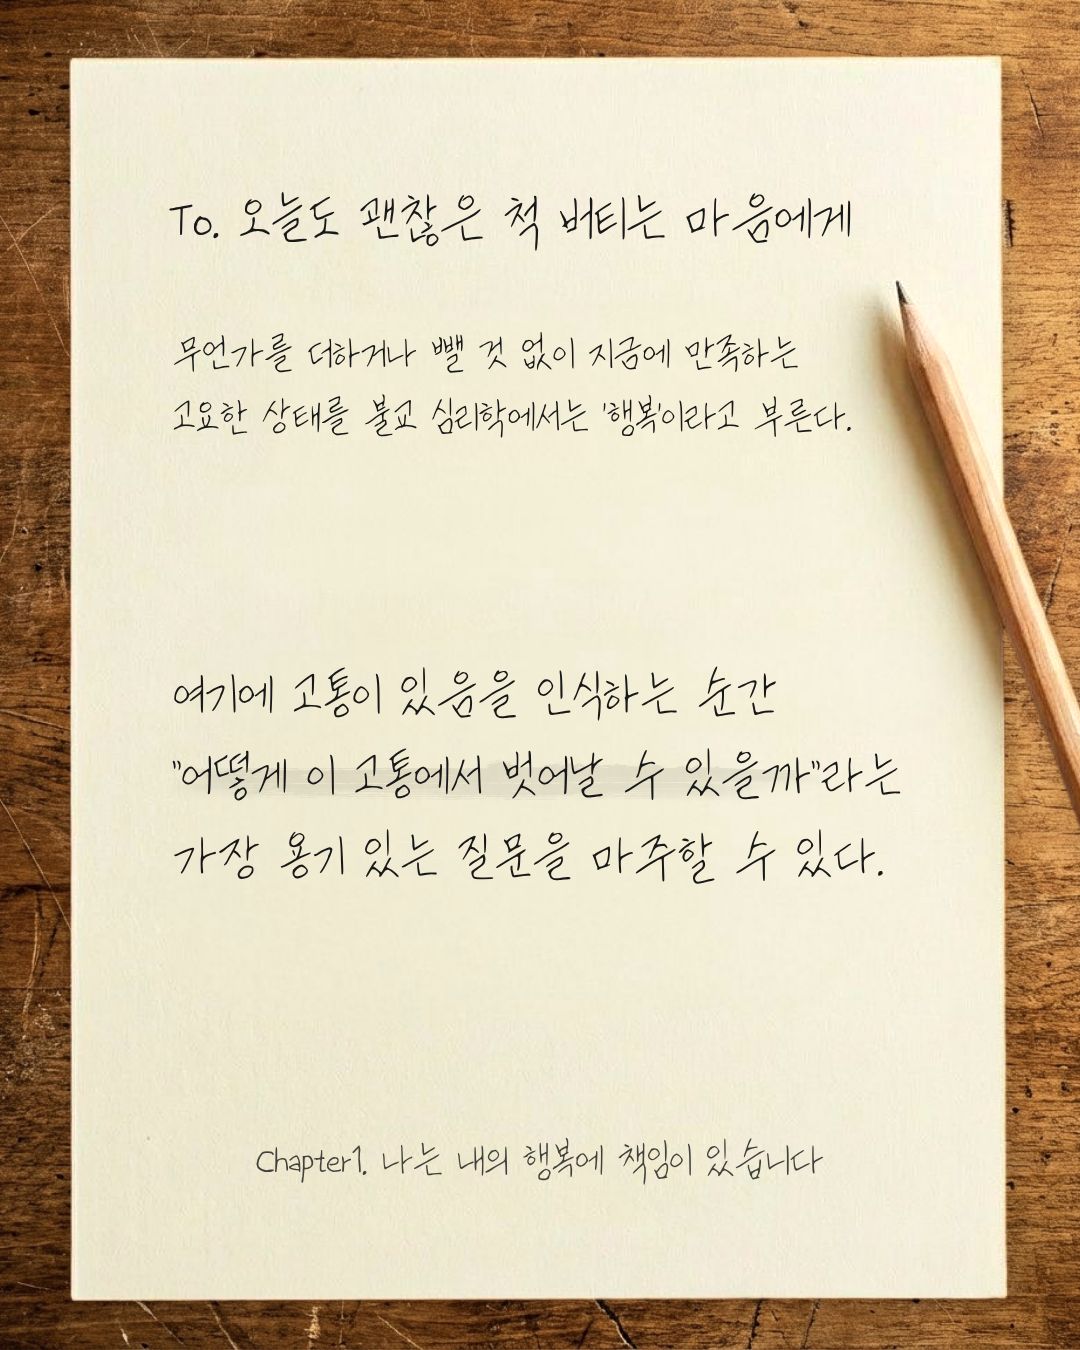 To. 오늘도 괜찮은 척 버티는 마음에게
무언가를 더하거나 뺄 것 없이 지금에 만족하는
고요한 상태를 불교 심리학에서는 '행복'이라고 부른다.
여기에 고통이 있음을 인식하는 순간
"어떻게 이 고통에서 벗어날 수 있을까"라는
가장 용기 있는 질문을 마주할 수 있다.
Chapter1. 나는 내의 행복에 책임이 있습니다